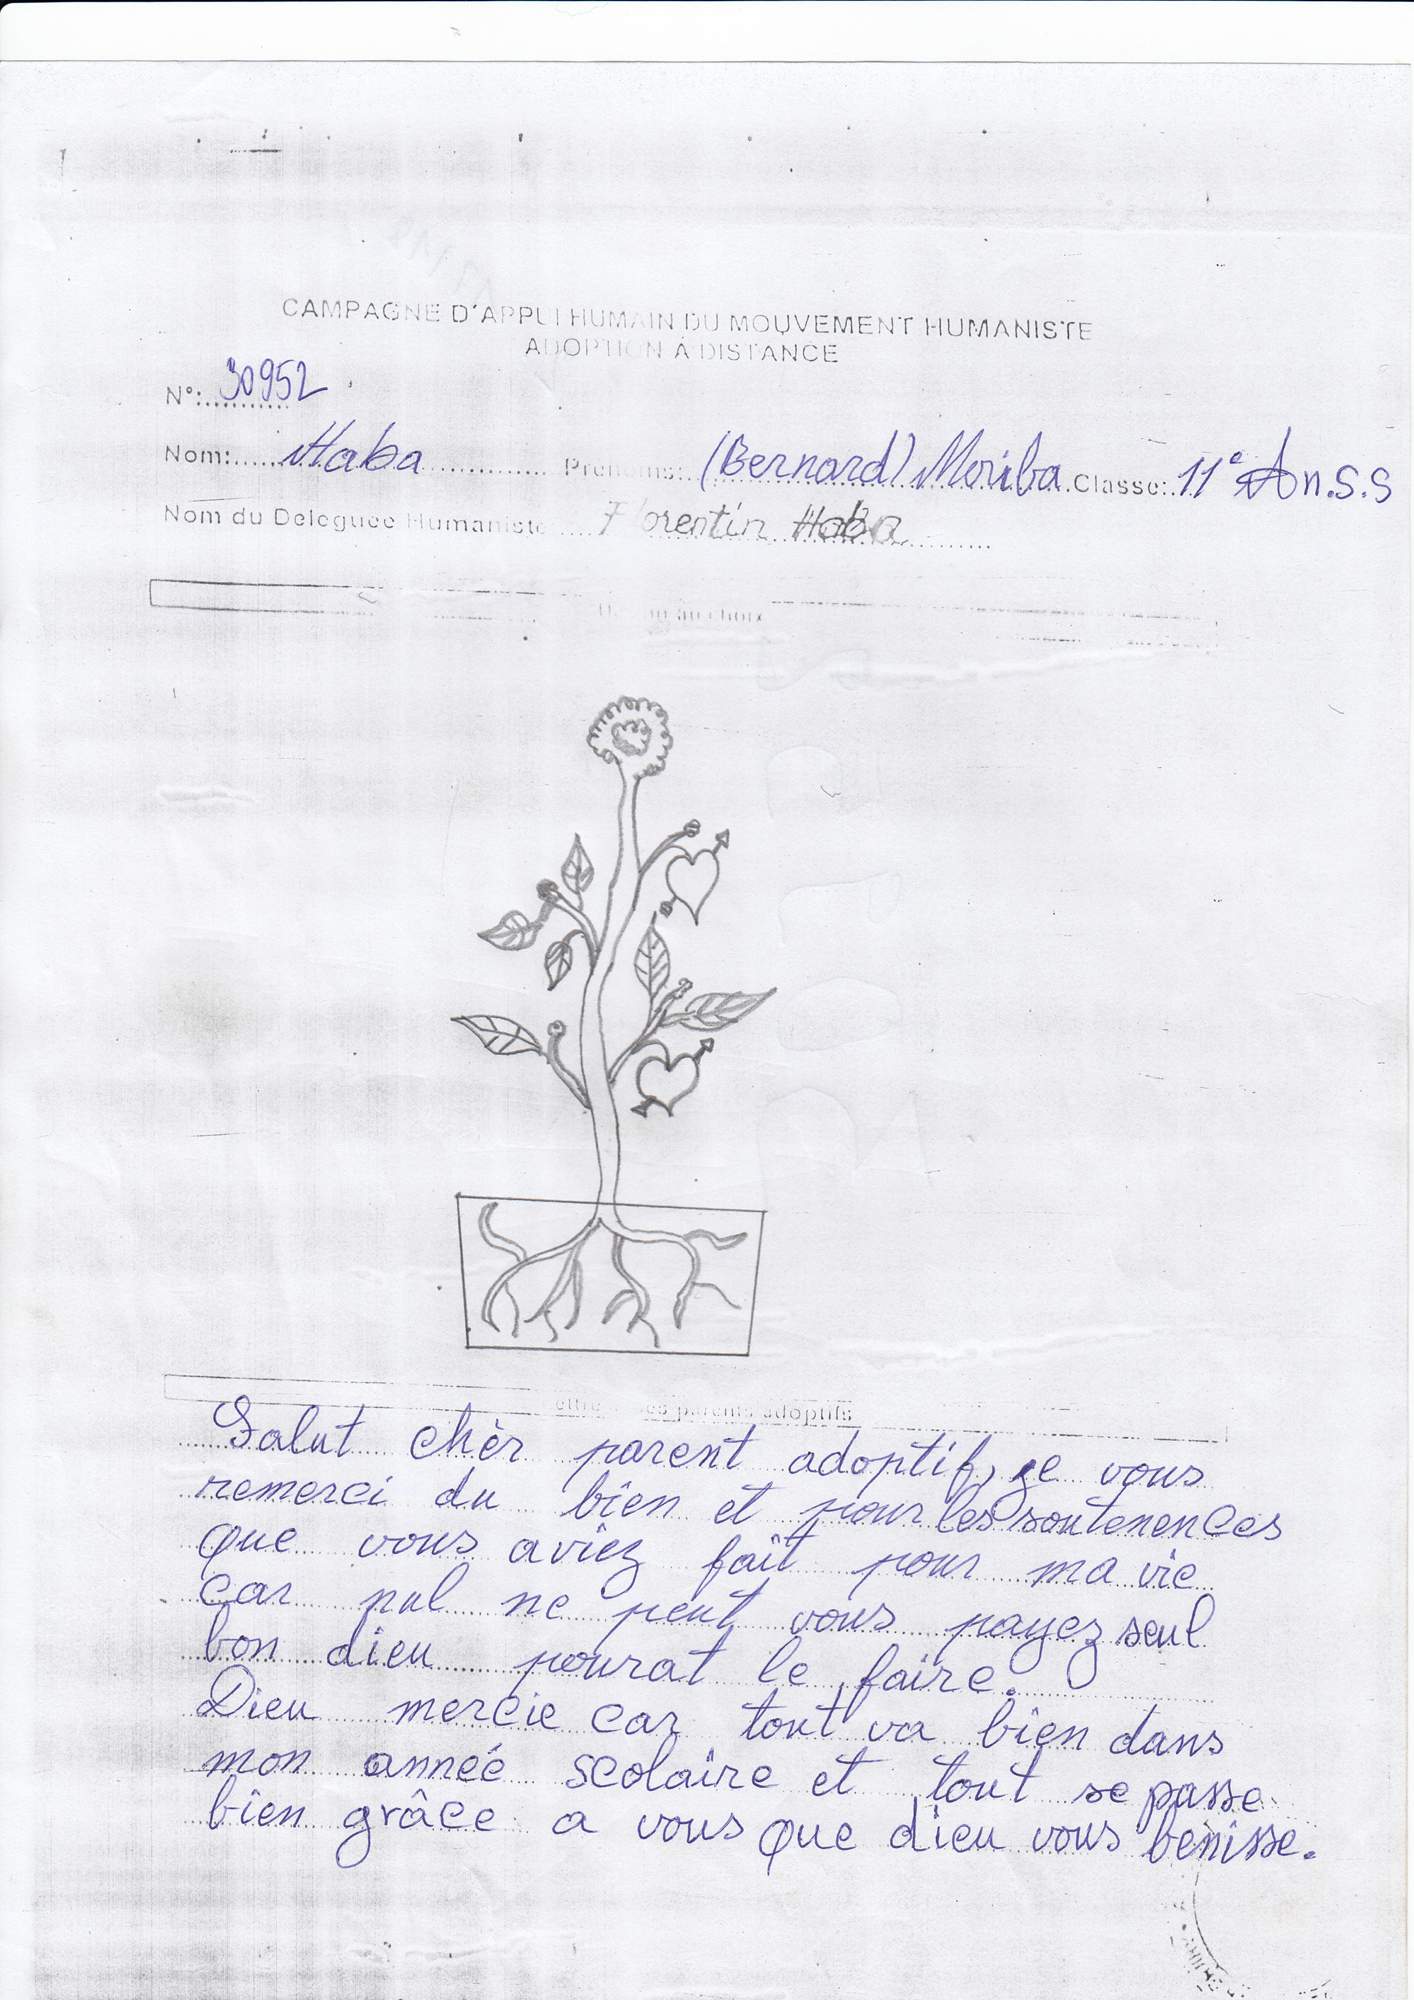 CAMPAGNE D'APPUI HUMAIN DU MOUVEMENT HUMANISTE
ADOPTION À DISTANCE
N°: 30952
Nom: Haba Prénoms: (Bernard) Moriba Classe: 11e An.S.S
Nom du Déléguée Humaniste Florentin Haba
au choix
parents adoptifs
Salut chèr parent adoptif, je vous
remerci du bien et pour les soutenences
que vous aviez fait pour ma vie
car nul ne peut vous payez seul
bon dieu pourat le faire.
Dieu mercie car tout va bien dans
mon année scolaire et tout se passe
bien grâce a vous que dieu vous benisse.